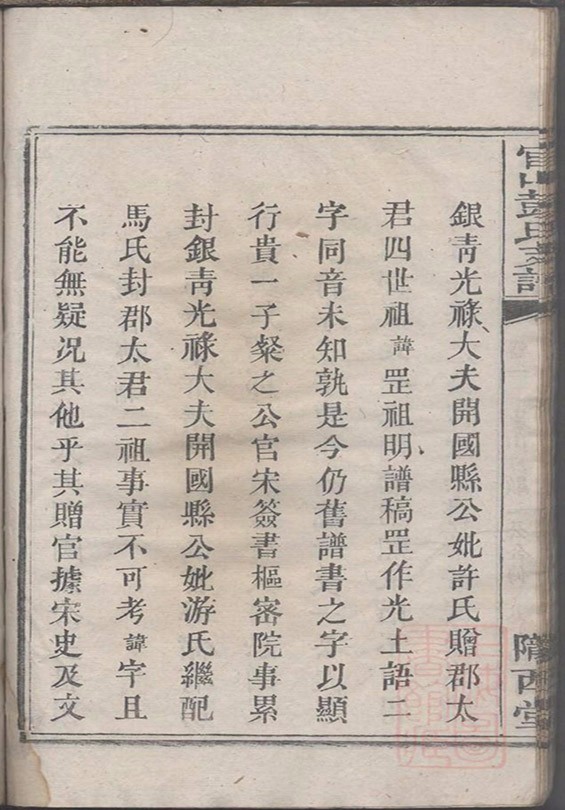 官山彭氏支譜
隴西堂
銀靑光祿大夫開國縣公妣許氏贈郡太
君四世祖諱罡祖明譜稿罡作光土語二
字同音未知孰是今仍舊譜書之字以顯
行貴一子粲之公官宋簽書樞密院事累
封銀靑光祿大夫開國縣公妣游氏繼配
馬氏封郡太君二祖事實不可考諱字且
不能無疑況其他乎其贈官據宋史及文